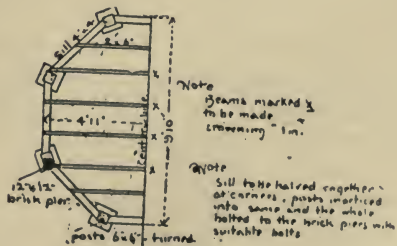 Sill 4"x6"
2"x6"
x
x
x
x
4' 11"
centre line
9' 10"
12"x12"
brick pier
posts 6"x6" turned
Note
Beams marked x
to be made
crowning "1 in."
Note
Sill to be halved together
at corners, posts morticed
into same and the whole
bolted to the brick piers with
suitable bolts